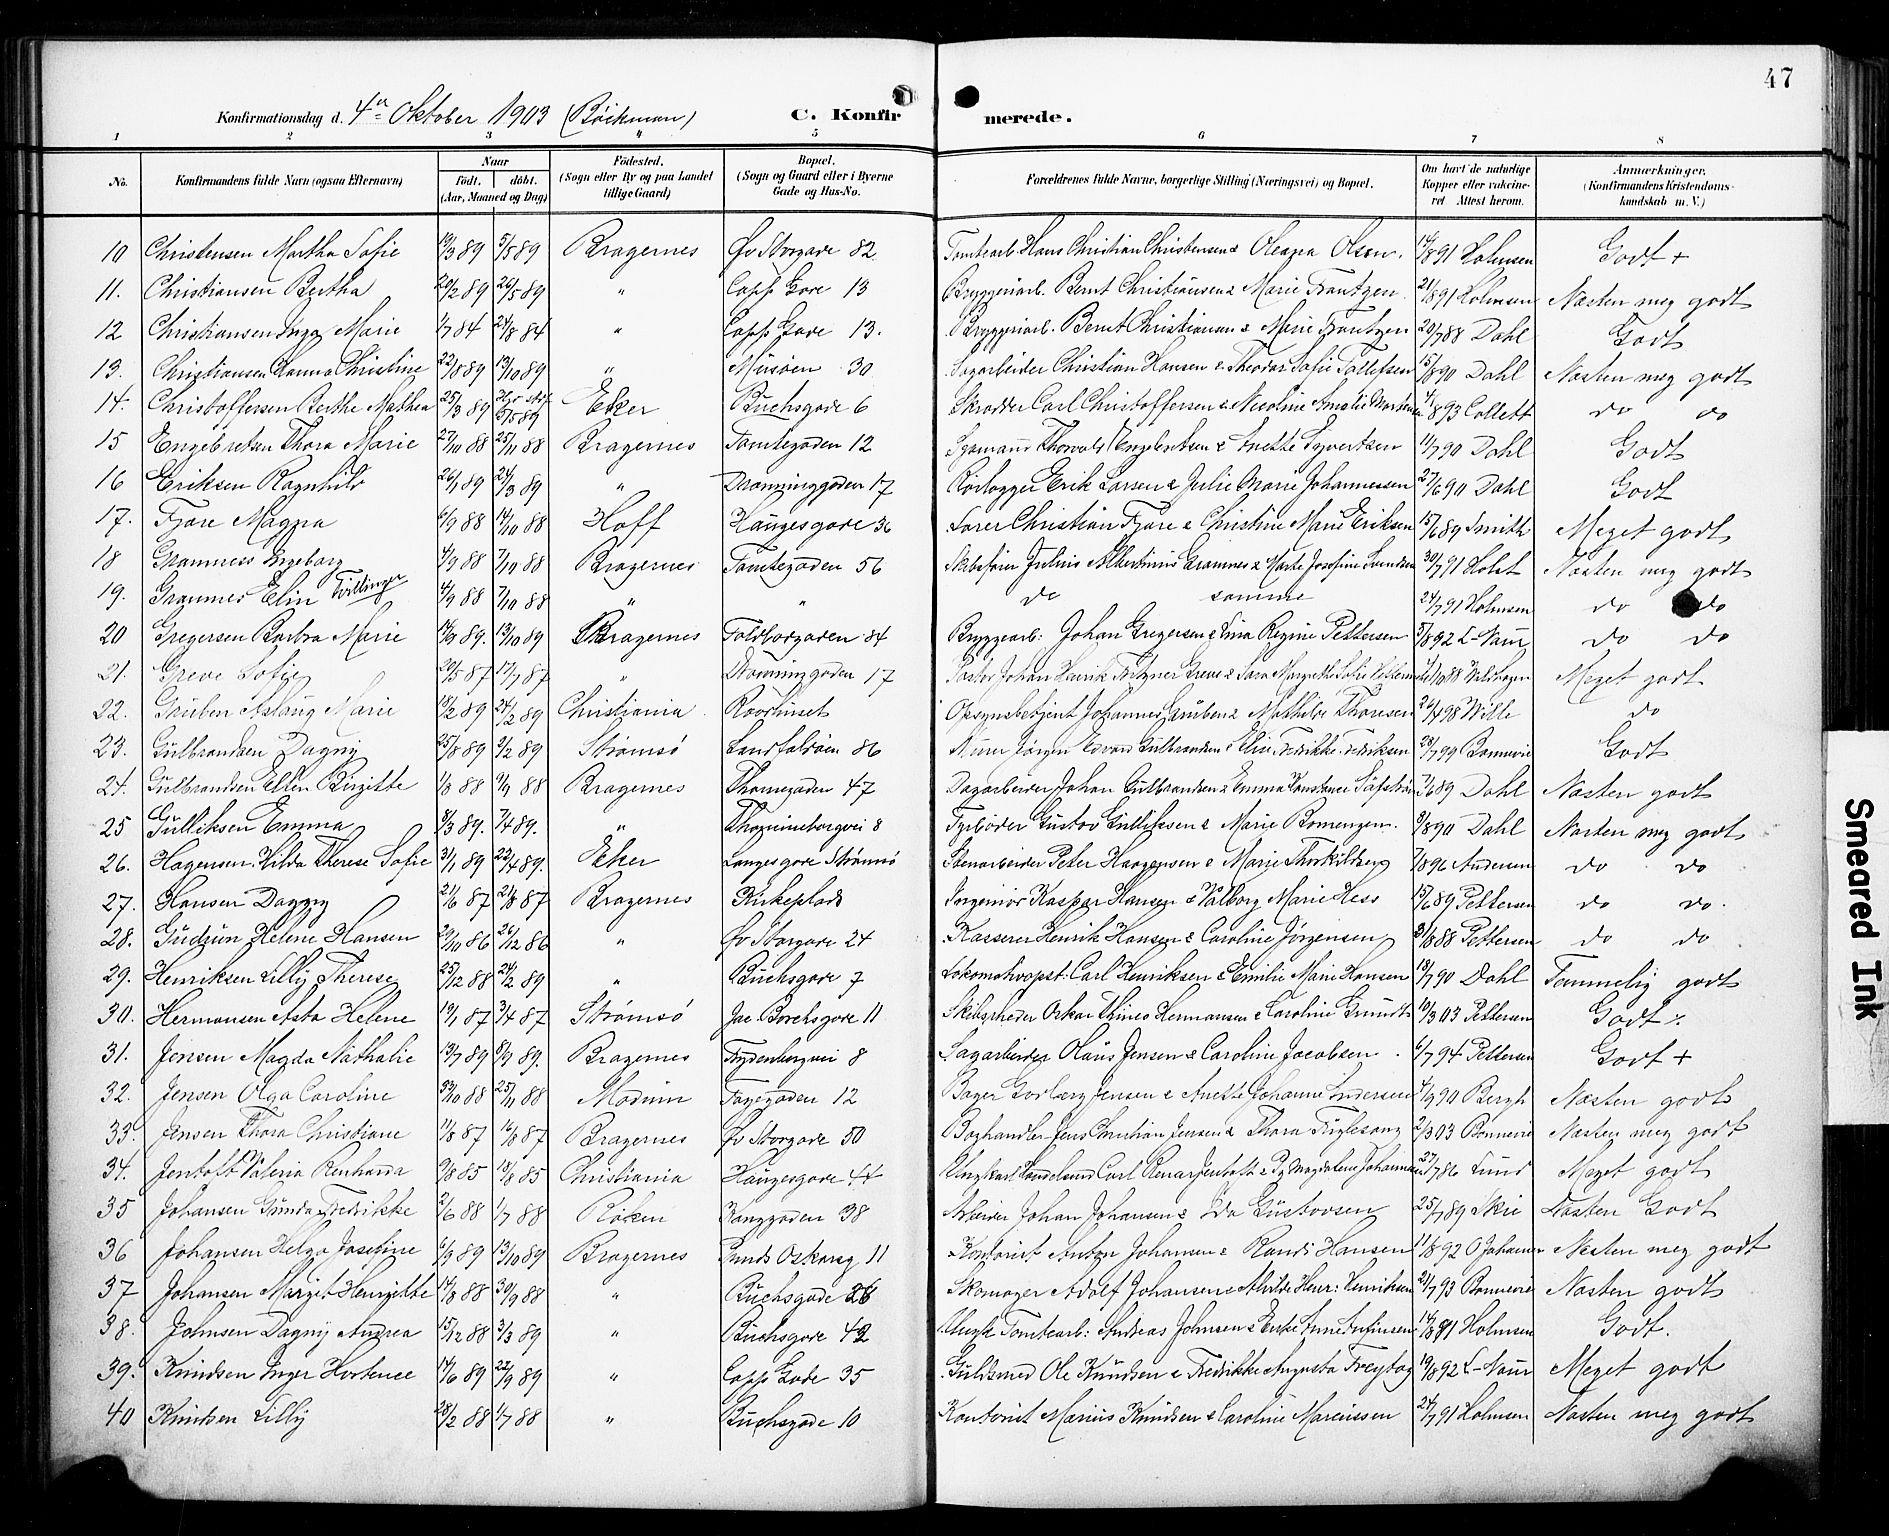 47
Konfirmationsdag d. 4de Oktober 1903 (Böckman) C. Konfirmerede.
1 2 3 4 5 6 7 8
No. Konfirmandens fulde Navn (ogsaa Efternavn) Naar født. døbt. (Aar, Maaned og Dag) Fødested. (Sogn eller By og paa Landet tillige Gaard) Bopæl. (Sogn og Gaard eller i Byerne Gade og Hus-No. Forældrenes fulde Navne, borgerlige Stilling (Næringsvei) og Bopæl. Om havt de naturlige Kopper eller vakcineret Attest herom. Anmærkninger. (Konfirmandens Kristendomskundskab m. V.)
10 Christensen Martha Sofie 19/3 89 5/5 89 Bragernes Øv Storgade 82 Tomtearb Hans Christian Christensen & Olsen. 14/8 91 Holmsen Godt +
11. Christiansen Bertha 20/2 89 26/5 89 " Capp Gade 13 Bryggeriarb. Bernt Christiansen & Marie Frantzen. 21/8 91 Holmsen Næsten meg godt
12 Christiansen Inga Marie 1/7 84 24/8 84 " Capp Gade 13. Bryggeriarb. Bernt Christiansen & Marie Frantzen 20/7 88 Dahl Godt
13. Christiansen Hanna Christine 22/8 89 13/10 89 " Musøen 30 Sagarbeider Christian Hansen & Sofie Tollefsen 15/8 90 Dahl Næsten meg godt
14. Christoffersen Berthe Mathea 25/3 89 5/5 89 Eker Buchsgade 6 Skrædder Carl Christoffersen & Nicoline Amalie 8 93 Collett do do
15 Engebretsen Thora Marie 27/10 88 25/11 88 Bragernes Tomtegaden 12 Sjømand Thorvald Engebretsen & Anette Syvertsen 11/7 90 Dahl Godt
16 Eriksen Ragnhild 26/1 89 24/3 89 " Dronninggaden 17 Rørlægger Erik Larsen & Julie Marie Johannessen 27/6 90 Dahl Godt
17. Fjære Magna 6/9 88 14/10 88 Hoff Haugesgade 36 Christian Fjære & Christine Marie Eriksen 15/6 89 Smith Meget godt
18 Gramness Ingeborg 4/9 88 7/10 88 Bragernes Tomtegaden 56 Skibsfører Julius Albertinius Gramnes & Marte Josefine Svendsen 30/7 91 Holst Næsten meg godt
19. Gramnes Elin Tvillinger 4/9 88 7/10 88 " " do samme 24/7 91 Holmsen do do
20 Gregersen Barbra Marie 14/9 89. 13/10 89 Bragernes Toldbodgaden 84 Bryggearb: Johan Gregersen & Lina Regine Pettersen 5/8 92 L-Naur do do
21. Greve Sofie 20/5 87 17/7 87 " Dronninggaden 17 Pastor Johan Henrik Greve & Sara Margrethe Sofie 10 88 Meget godt
22. Gruben Aslaug Marie 18/2 89 24/2 89 Christiania Raadhuset Opsynsbetjent Johannes Gruben & Mathilde Thoresen 26/4 98 Wille do
23. Gulbrandsen Dagny 25/8 89 Strømsø Landfaldøen 86 Murer Jørgen Edvard Gulbrandsen & Elise Fredrikke Fredriksen 28/7 99 Bonnevie Godt
24. Gulbrandsen Ellen Birgitte 1/8 88 9/9 88 Bragernes Thornegaden 47 Dagarbeider Johan Gulbrandsen & Emma Constance 7/6 89 Dahl Næsten godt
25 Gulliksen Emma 8/3 89. 7/4 89. " 8 Fyrbøder Gustav Gulliksen & Marie Bomengen. 9/8 90 Dahl Næsten meg godt
26. Hagensen Hilda Therese Sofie 31/1 89 22/4 89. Eker Langesgade Strømsø Stenarbeider Peter Haagensen & Marie Thorkildsen 7/8 96 Andersen do do
27. Hansen Dagny 21/6 87 21/8 87 Bragernes Kirkeplads Kaspar Hansen & Valborg Marie Hess 15/6 89 Pettersen do do.
28. Gudrun Helene Hansen 29/10 86 26/12 86 " Øv Storgade 24 Kasserer Henrik Hansen & Caroline Jörgensen 31/8 88 Pettersen do do
29. Henriksen Lilly Therese 25/12 88 24/2 89 " Buchsgade 7 Lokomotivopst: Carl Henriksen & Emilie Marie Hansen 18/7 90 Dahl Temmelig godt
30. Hermansen Asta Helene 19/1 87 3/4 87 Strømsø Jac Borchsgade 11 Skibsreder Oskar Hermansen & Caroline Grundt 10/3 03 Pettersen Godt
31. Jensen Magda Nathalie 13/7 89 8/9 89. Bragernes Frydenbergvei 8 Sagarbeider Olaus Jensen & Caroline Jacobsen. 6/7 94 Pettersen Godt +
32. Jensen Olga Caroline 10 88 25/11 88 Modum Fagegaden 12 Bager Jensen & Anette Johanne Andersen 4/9 90 Bergh Næsten godt
33. Jensen Thora Christiane 11/8 87 16/8 87 Bragernes Øv Storgade 50 Boghandler Jens Christian Jensen & Thora Fuglesang 2/3 03 Bonnevie Næsten meg godt
34. Jentoft Valeria Renharda 9/8 85 18/8 85 Christiania Haugesgade 44 Ungkarl Handelsmd Carl Jentoft & Pg Magdalena Johannesen 27/7 86 Lund Meget godt
35 Johansen Gunda Fredrikke 2/6 88 1/7 88 Røken Konggaden 38 Arbeider Johan Johansen & Ida Gustavsen 25/7 89 Skie Næsten Godt
36 Johansen Helga Josefine 6/9 89 13/10 89 Bragernes Prinds Oskarsg 11 Kontorist Anton Johansen & Randi Hansen 11/8 92 O Johansen Næsten meg godt
37 Johansen Margit Henriette 14/8 88 30/9 88 " Buchsgade 26 Skomager Adolf Johansen & Alvilde Henr: Henriksen 21/7 93 Bonnevie Næsten godt
38. Johnsen Dagny Andrea 15/12 88 3/3 89 " Buchsgade 42 Ungk Tomtearb: Andreas Johnsen & Enke Anne 14/8 91 Holmsen Godt.
39. Knudsen Inger Hortense 14/6 89 22/9 89 " Capp Gade 35 Guldsmed Ole Knudsen & Fredrikke Augusta Freytag 19/8 92 L-Naur Meget godt
40 Knudsen Lilly 28/2 88 1/7 88 " Buchsgade 10 Kontorist Marius Knudsen & Caroline Marcussen 24/7 91 Holmsen Næsten meg godt
Smeared Ink